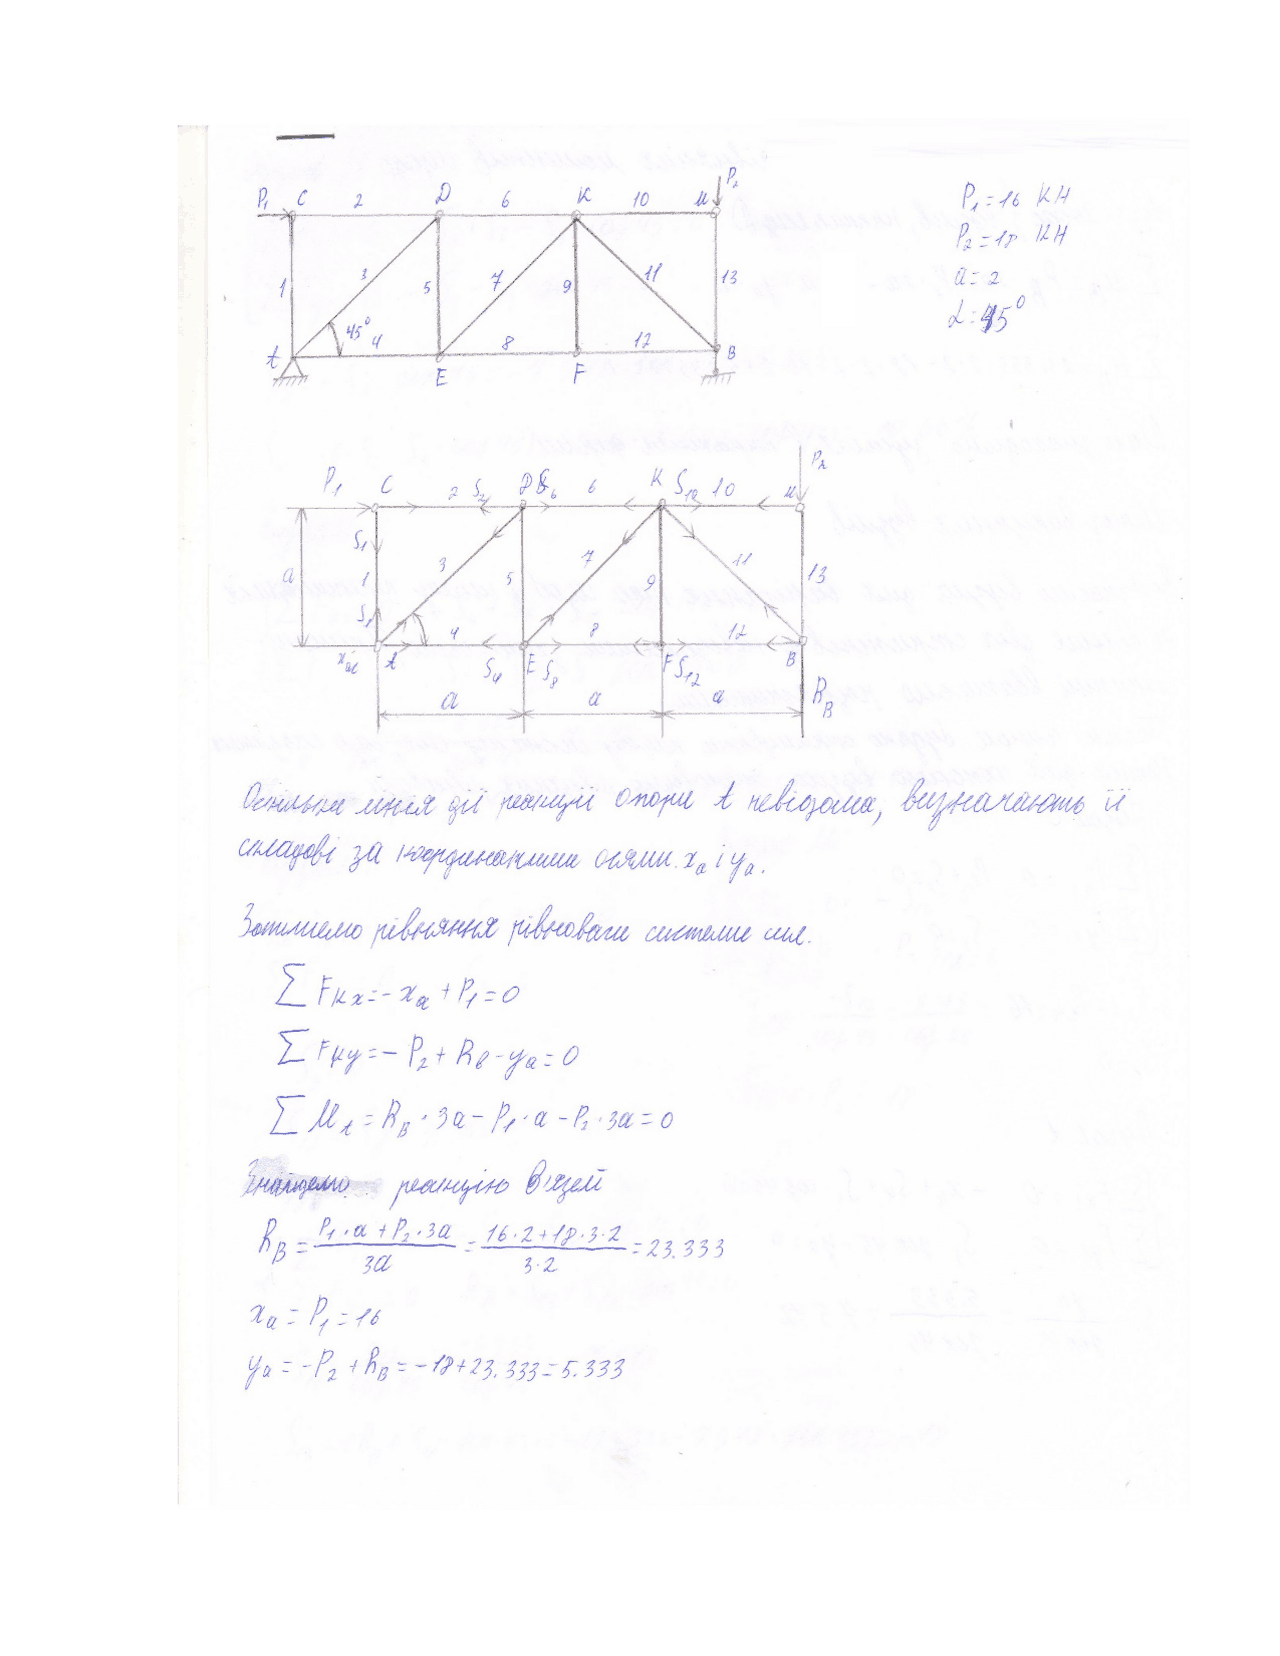 P₁ C 2 D 6 K 10 M P₂
P₁=16 КН
P₂=18 КН
a=2
1 3 5 7 9 11 13
L=45°
45° 4 8 12
A E F B
P₁ C 2 S₂ D S₆ 6 K S₁₀ 10 M P₂
S₁
a 1 3 5 7 9 11 13
S₁ 4 8 12
xₐ A S₄ E S₈ F S₁₂ B R_B
a a a
Оскільки лінія дії реакції опори A невідома, визначають її
складові за координатними осями xₐ і yₐ.
Запишемо рівняння рівноваги системи сил.
∑Fкx=-xₐ+P₁=0
∑Fкy=-P₂+Rв-yₐ=0
∑M_A=R_B·3a-P₁·a-P₂·3a=0
Знайдемо реакцію в'язей
R_B=(P₁·a+P₂·3a)/3a=(16·2+18·3·2)/3·2=23.333
xₐ=P₁=16
yₐ=-P₂+R_B=-18+23.333=5.333